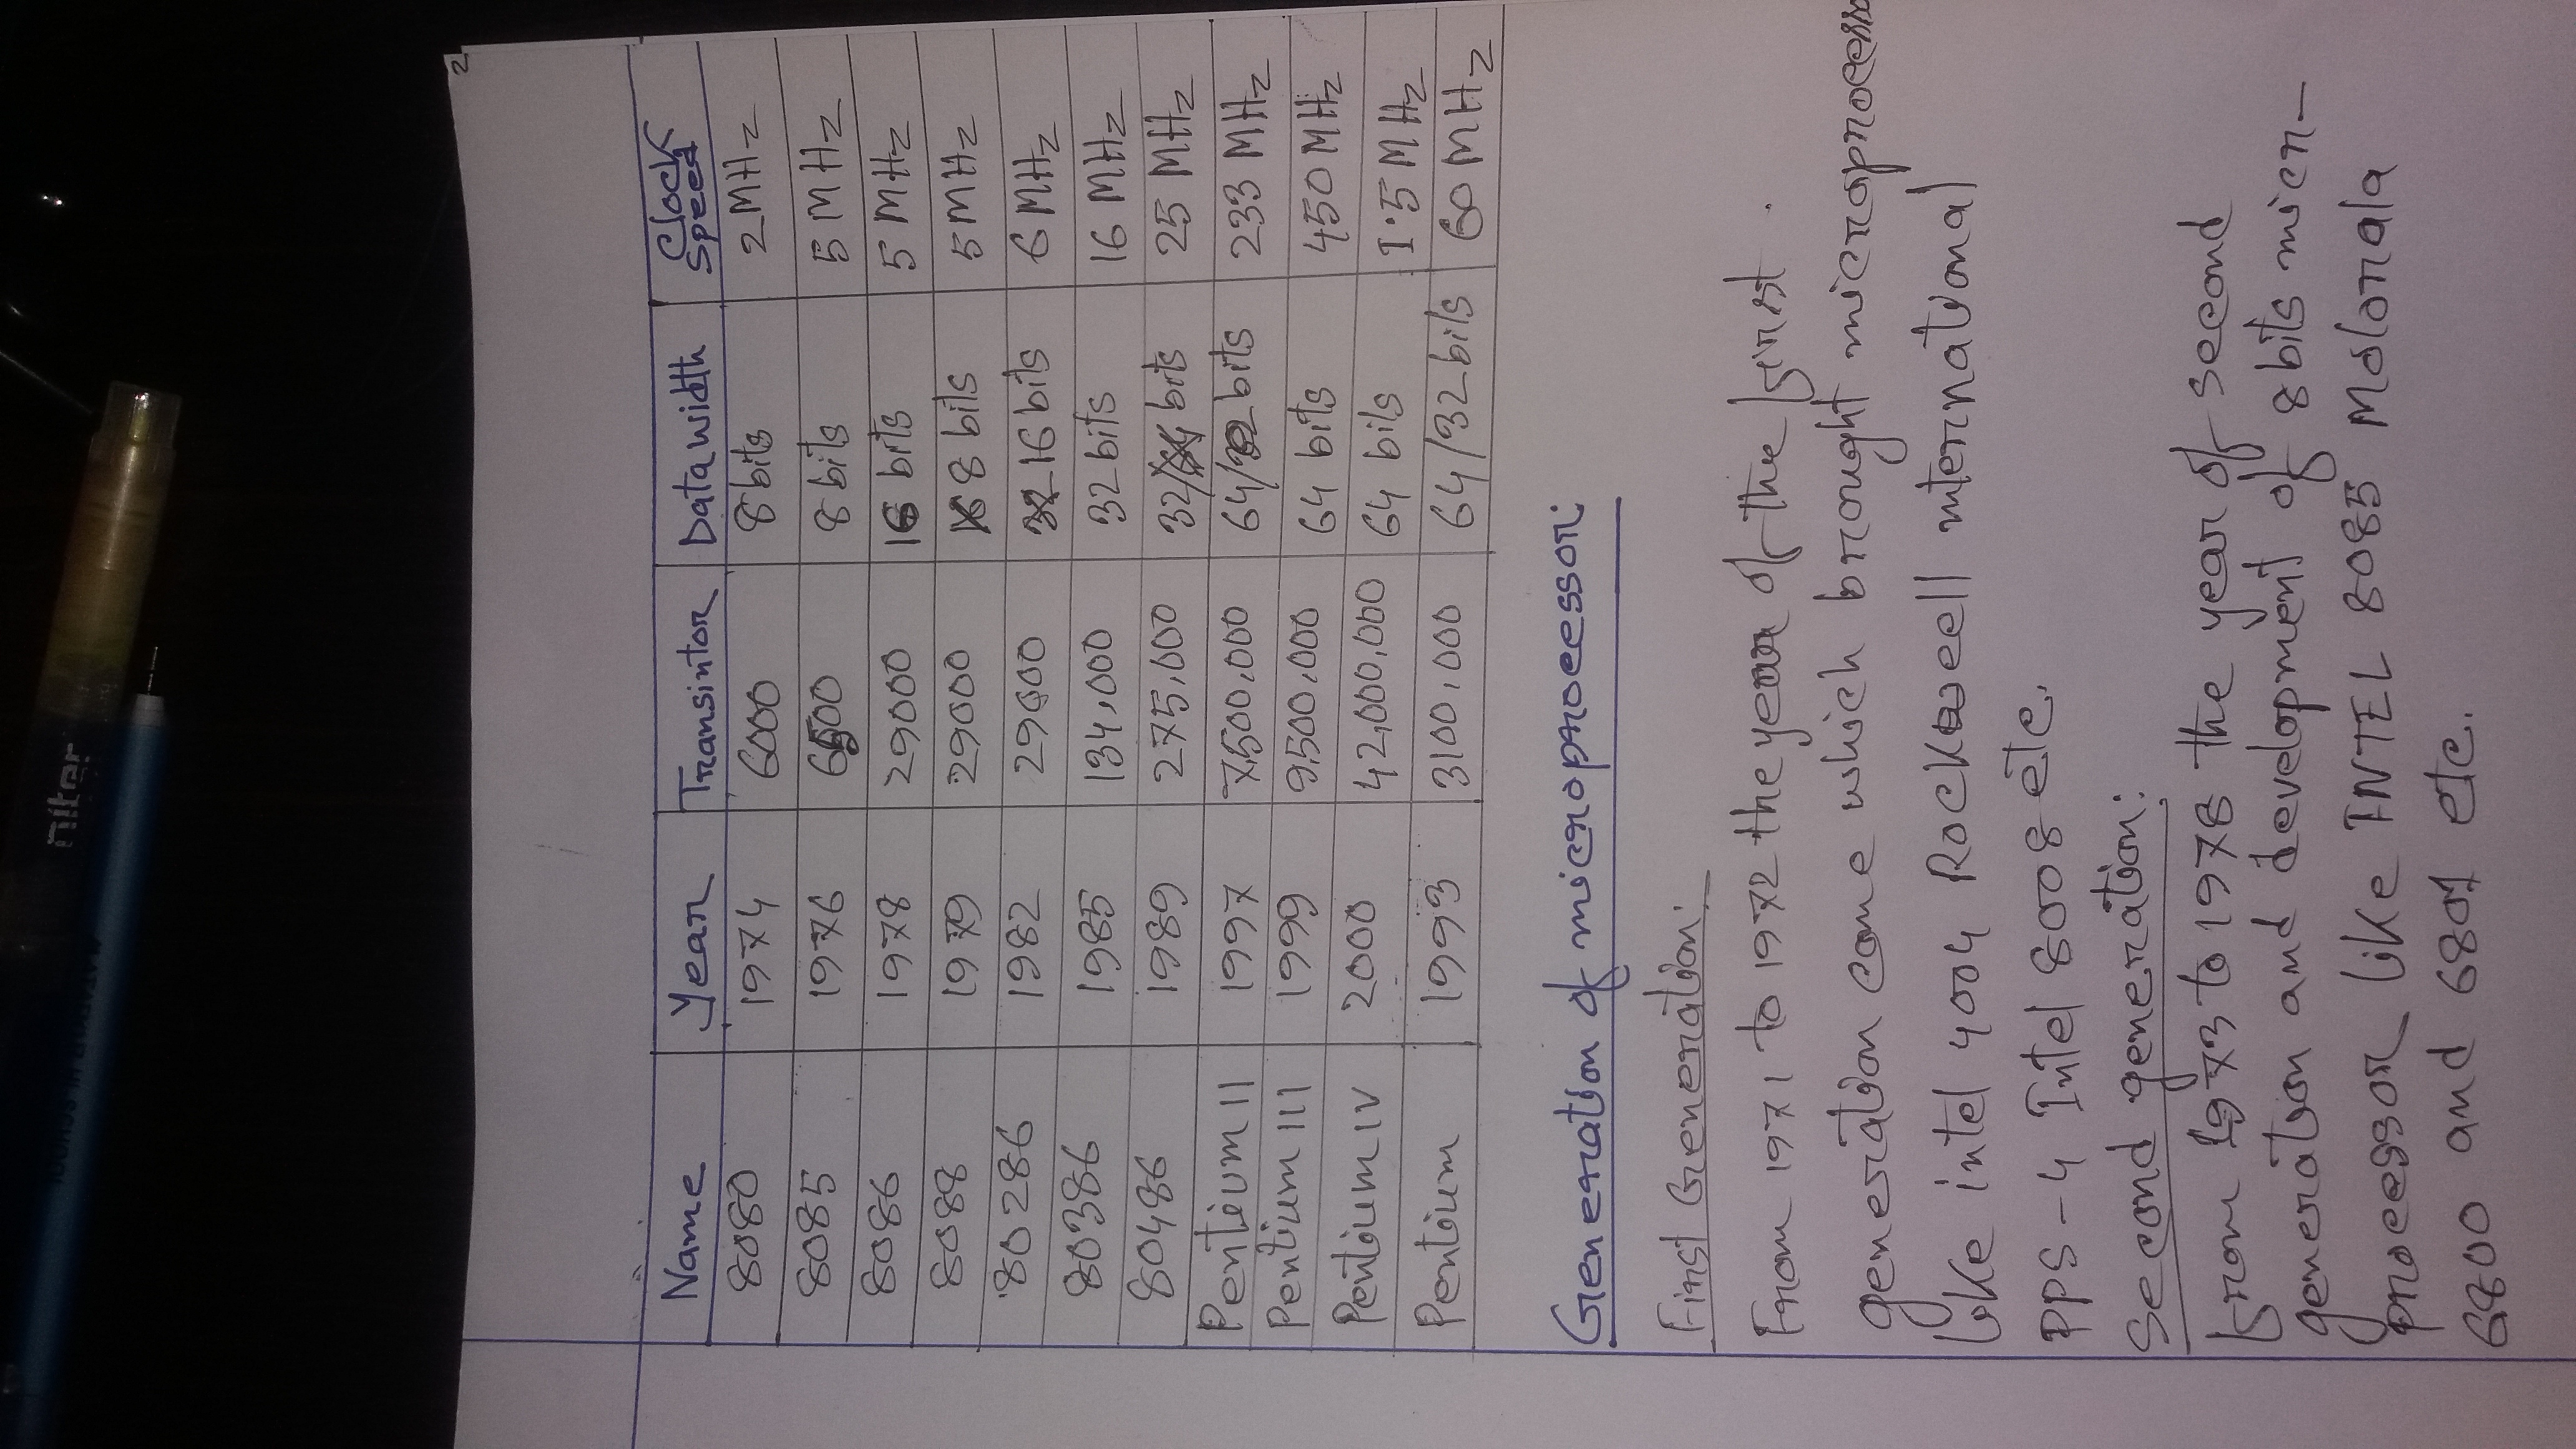 niter
2
Name Year Transintor Data width Clock Speed
8080 1974 6000 8 bits 2 MHz
8085 1976 6500 8 bits 5 MHz
8086 1978 29000 16 bits 5 MHz
8088 1979 29000 8 bits 5 MHz
80286 1982 29000 16 bits 6 MHz
80386 1985 134,000 32 bits 16 MHz
80486 1989 275,000 32/ bits 25 MHz
Pentium II 1997 7,500,000 64/32 bits 233 MHz
Pentium III 1999 9,500,000 64 bits 450 MHz
Pentium IV 2000 42,000,000 64 bits 1.5 MHz
Pentium 1993 3100,000 64/32 bits 60 MHz
Generation of microprocessor:
First Generation:
From 1971 to 1972 the year of the first
generation come which brought microprocesso
like intel 4004 Rockweell international
PPS-4 Intel 8008 etc.
Second generation:
from 1973 to 1978 the year of second
generation and development of 8 bits micr-
processor like INTEL 8085 Motorala
6800 and 6801 etc.